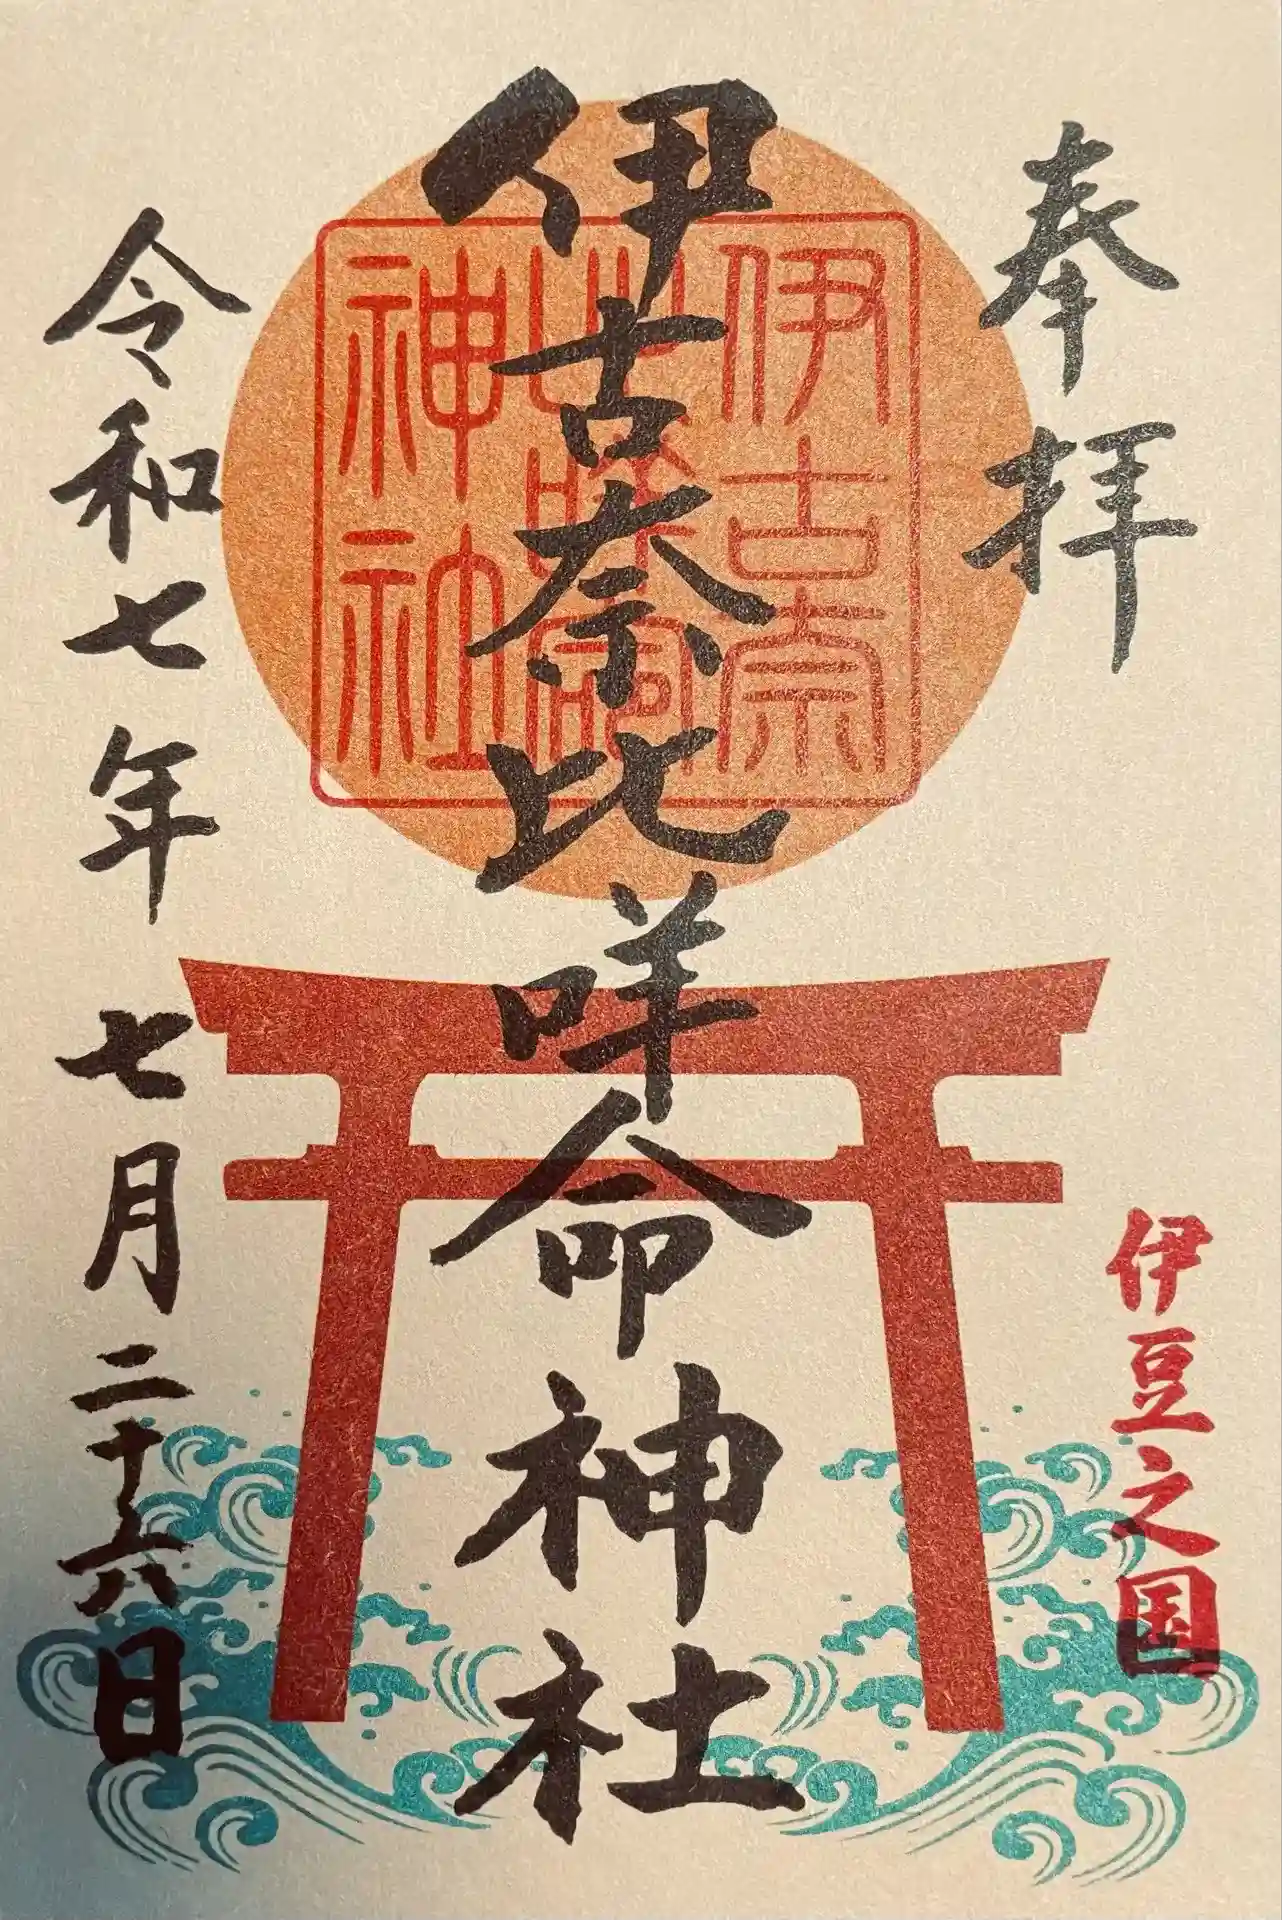 奉拝
伊豆之国
伊古奈比咩命神社
伊古奈
比咩命
神社
令和七年七月二十六日